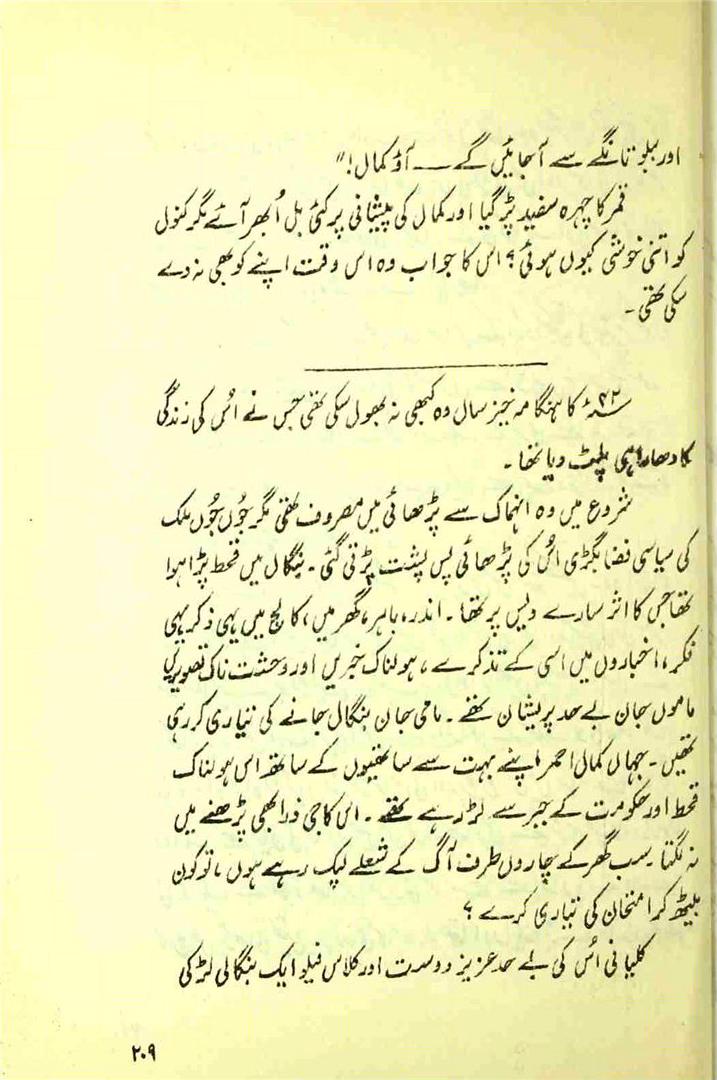 اور ببلو تانگے سے آ جائیں گے ــــ آؤ کمال!"
قمر کا چہرہ سفید پڑ گیا اور کمال کی پیشانی پر کئی بل اُبھر آئے مگر کنول
کو اتنی خوشی کیوں ہوئی؟ اس کا جواب وہ اس وقت اپنے کو بھی نہ دے
سکی تھی۔
۴۲ء؁ کا ہنگامہ خیز سال وہ کبھی نہ بھول سکی تھی جس نے اُس کی زندگی
کا دھارا ہی پلٹ دیا تھا۔
شروع میں وہ انہماک سے پڑھائی میں مصروف تھی مگر جُوں جُوں ملک
کی سیاسی فضا بگڑی اُس کی پڑھائی پس پشت پڑتی گئی۔ بنگال میں قحط پڑا ہوا
تھا جس کا اثر سارے دیس پر تھا۔ اندر، باہر، گھر میں، کالج میں یہی ذکر یہی
فکر، اخباروں میں اسی کے تذکرے، ہولناک خبریں اور وحشت ناک تصویریں
ماموں جان بے حد پریشان تھے۔ مامی جان بنگال جانے کی تیاری کر رہی
تھیں۔ جہاں کمال احمر اپنے بہت سے ساتھیوں کے ساتھ اس ہولناک
قحط اور حکومت کے جبر سے لڑ رہے تھے۔ اس کا جی ذرا بھی پڑھنے میں
نہ لگتا۔ سب گھر کے چاروں طرف آگ کے شعلے لپک رہے ہوں، تو کون
بیٹھ کر امتحان کی تیاری کرے؟
کلیانی اُس کی بے حد عزیز دوست اور کلاس فیلو ایک بنگالی لڑکی
۲۰۹